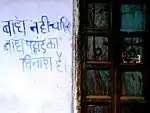 बाँध नहीं चाहिए
बाँध पहाड़ का
विनाश है